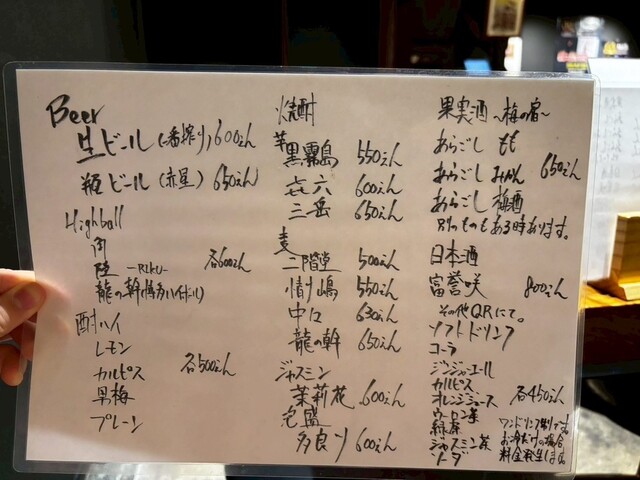 Beer
生ビール（一番搾り）600えん
瓶ビール（赤星）650えん
Highball
角
陸 -RIKU- 各600えん
龍の幹（博多ハイボール）
酎ハイ
レモン
カルピス 各500えん
男梅
プレーン
焼酎
芋
黒霧島 550えん
㐂六 600えん
三岳 650えん
麦
二階堂 500えん
情け嶋 550えん
中々 630えん
龍の幹 650えん
ジャスミン
茉莉花 600えん
泡盛
多良川 600えん
果実酒 ~梅の宿~
あらごし もも
あらごし みかん 650えん
あらごし 梅酒
別のものもある時あります。
日本酒
富誉咲 800えん
その他QRにて。
ソフトドリンク
コーラ
ジンジャーエール
カルピス
オレンジジュース 各450えん
ウーロン茶
緑茶
ジャスミン茶
ソーダ
ワンドリンク制です。
お冷だけの場合
料金発生します。